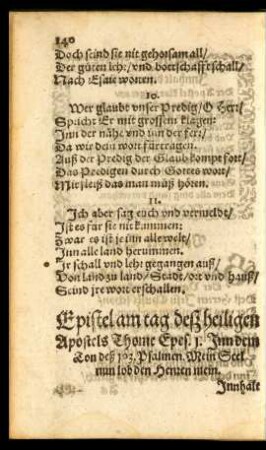 140
Doch seind sie nit gehorsam all/
Der gůten lehr/ vnd bottschafft schall/
Nach Esaie worten.
10.
Wer glaubt vnser Predig/ O Herr/
Spricht Er mit grossem klagen:
Inn der nähe vnd inn der ferr/
Da wir dein wort fürtragen.
Auß der Predig der Glaub kompt fort/
Das Predigen durch Gottes wort/
Mit fleiß das man můß hören.
11.
Ich aber sag euch vnd vermeldt/
Ist es für sie nit kommen:
Zwar es ist je inn alle welt/
Inn alle land herummen.
Ir schall vnd lehr gegangen auß/
Von länd zu land/ Stadt/ ort vnd hauß/
Seind jre wort erschallen.
Epistel am tag deß heiligen
Apostels Thome Epes. 1. Inn dem
Ton deß 103. Psalmen. Mein Seel
nun lob den Herren mein.
Innhalt